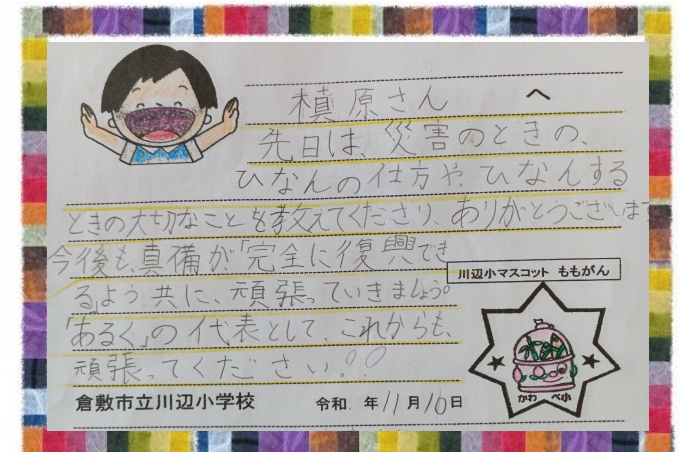 槙原さん へ
先日は、災害のときの、
ひなんの仕方や、ひなんする
ときの大切なことを教えてくださり、ありがとうございま
今後も、真備が「完全に復興でき
るよう共に、頑張っていきましょう。
「あるく」の代表として、これからも、
頑張ってください!!
川辺小マスコット ももがん
かわ べ小
倉敷市立川辺小学校 令和 年11月10日